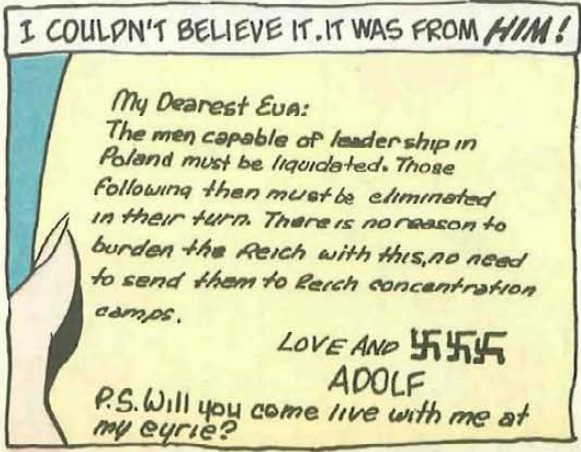 I COULDN'T BELIEVE IT. IT WAS FROM HIM!
My Dearest Eva:
The men capable of leadership in
Poland must be liquidated. Those
following then must be eliminated
in their turn. There is no reason to
burden the Reich with this, no need
to send them to Reich concentration
camps.
LOVE AND 卐卐卐
ADOLF
P.S. Will you come live with me at
my eyrie?